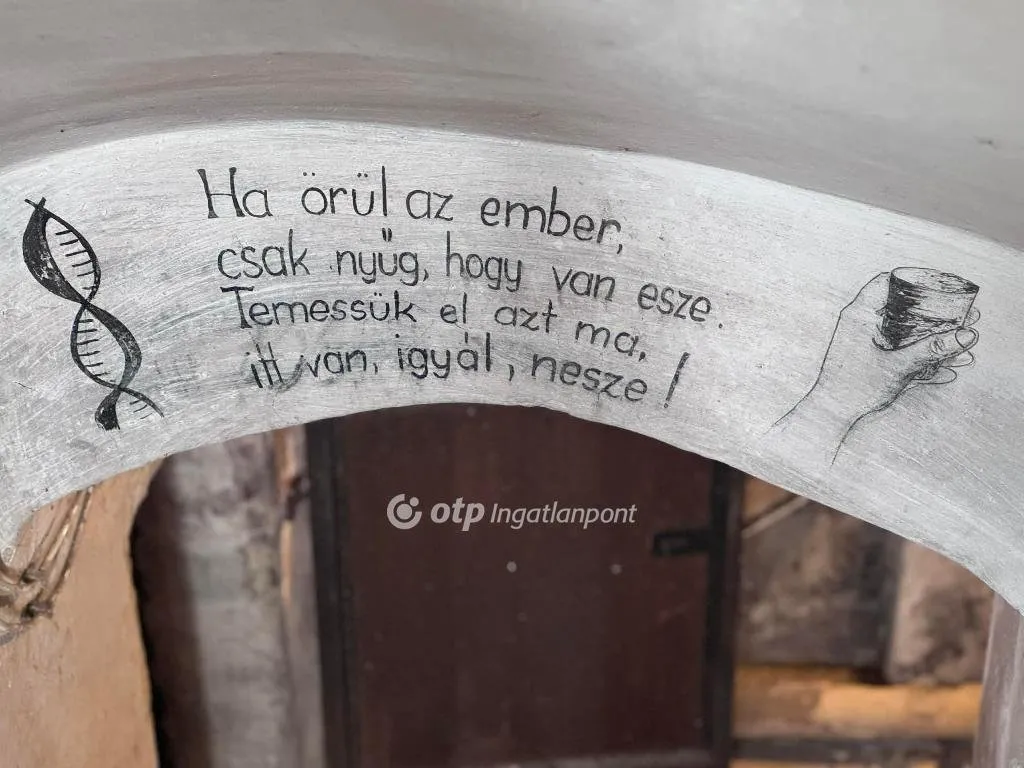 Ha örül az ember,
csak nyűg, hogy van esze.
Temessük el azt ma,
itt van, igyál, nesze!
otp Ingatlanpont